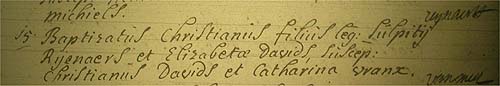 michiels.
15 Baptizatus Christianus filius leg: Sulpitÿ
Rijenaers et Elizabetæ Davids, suscep:
Christianus Davids et Catharina vranx.